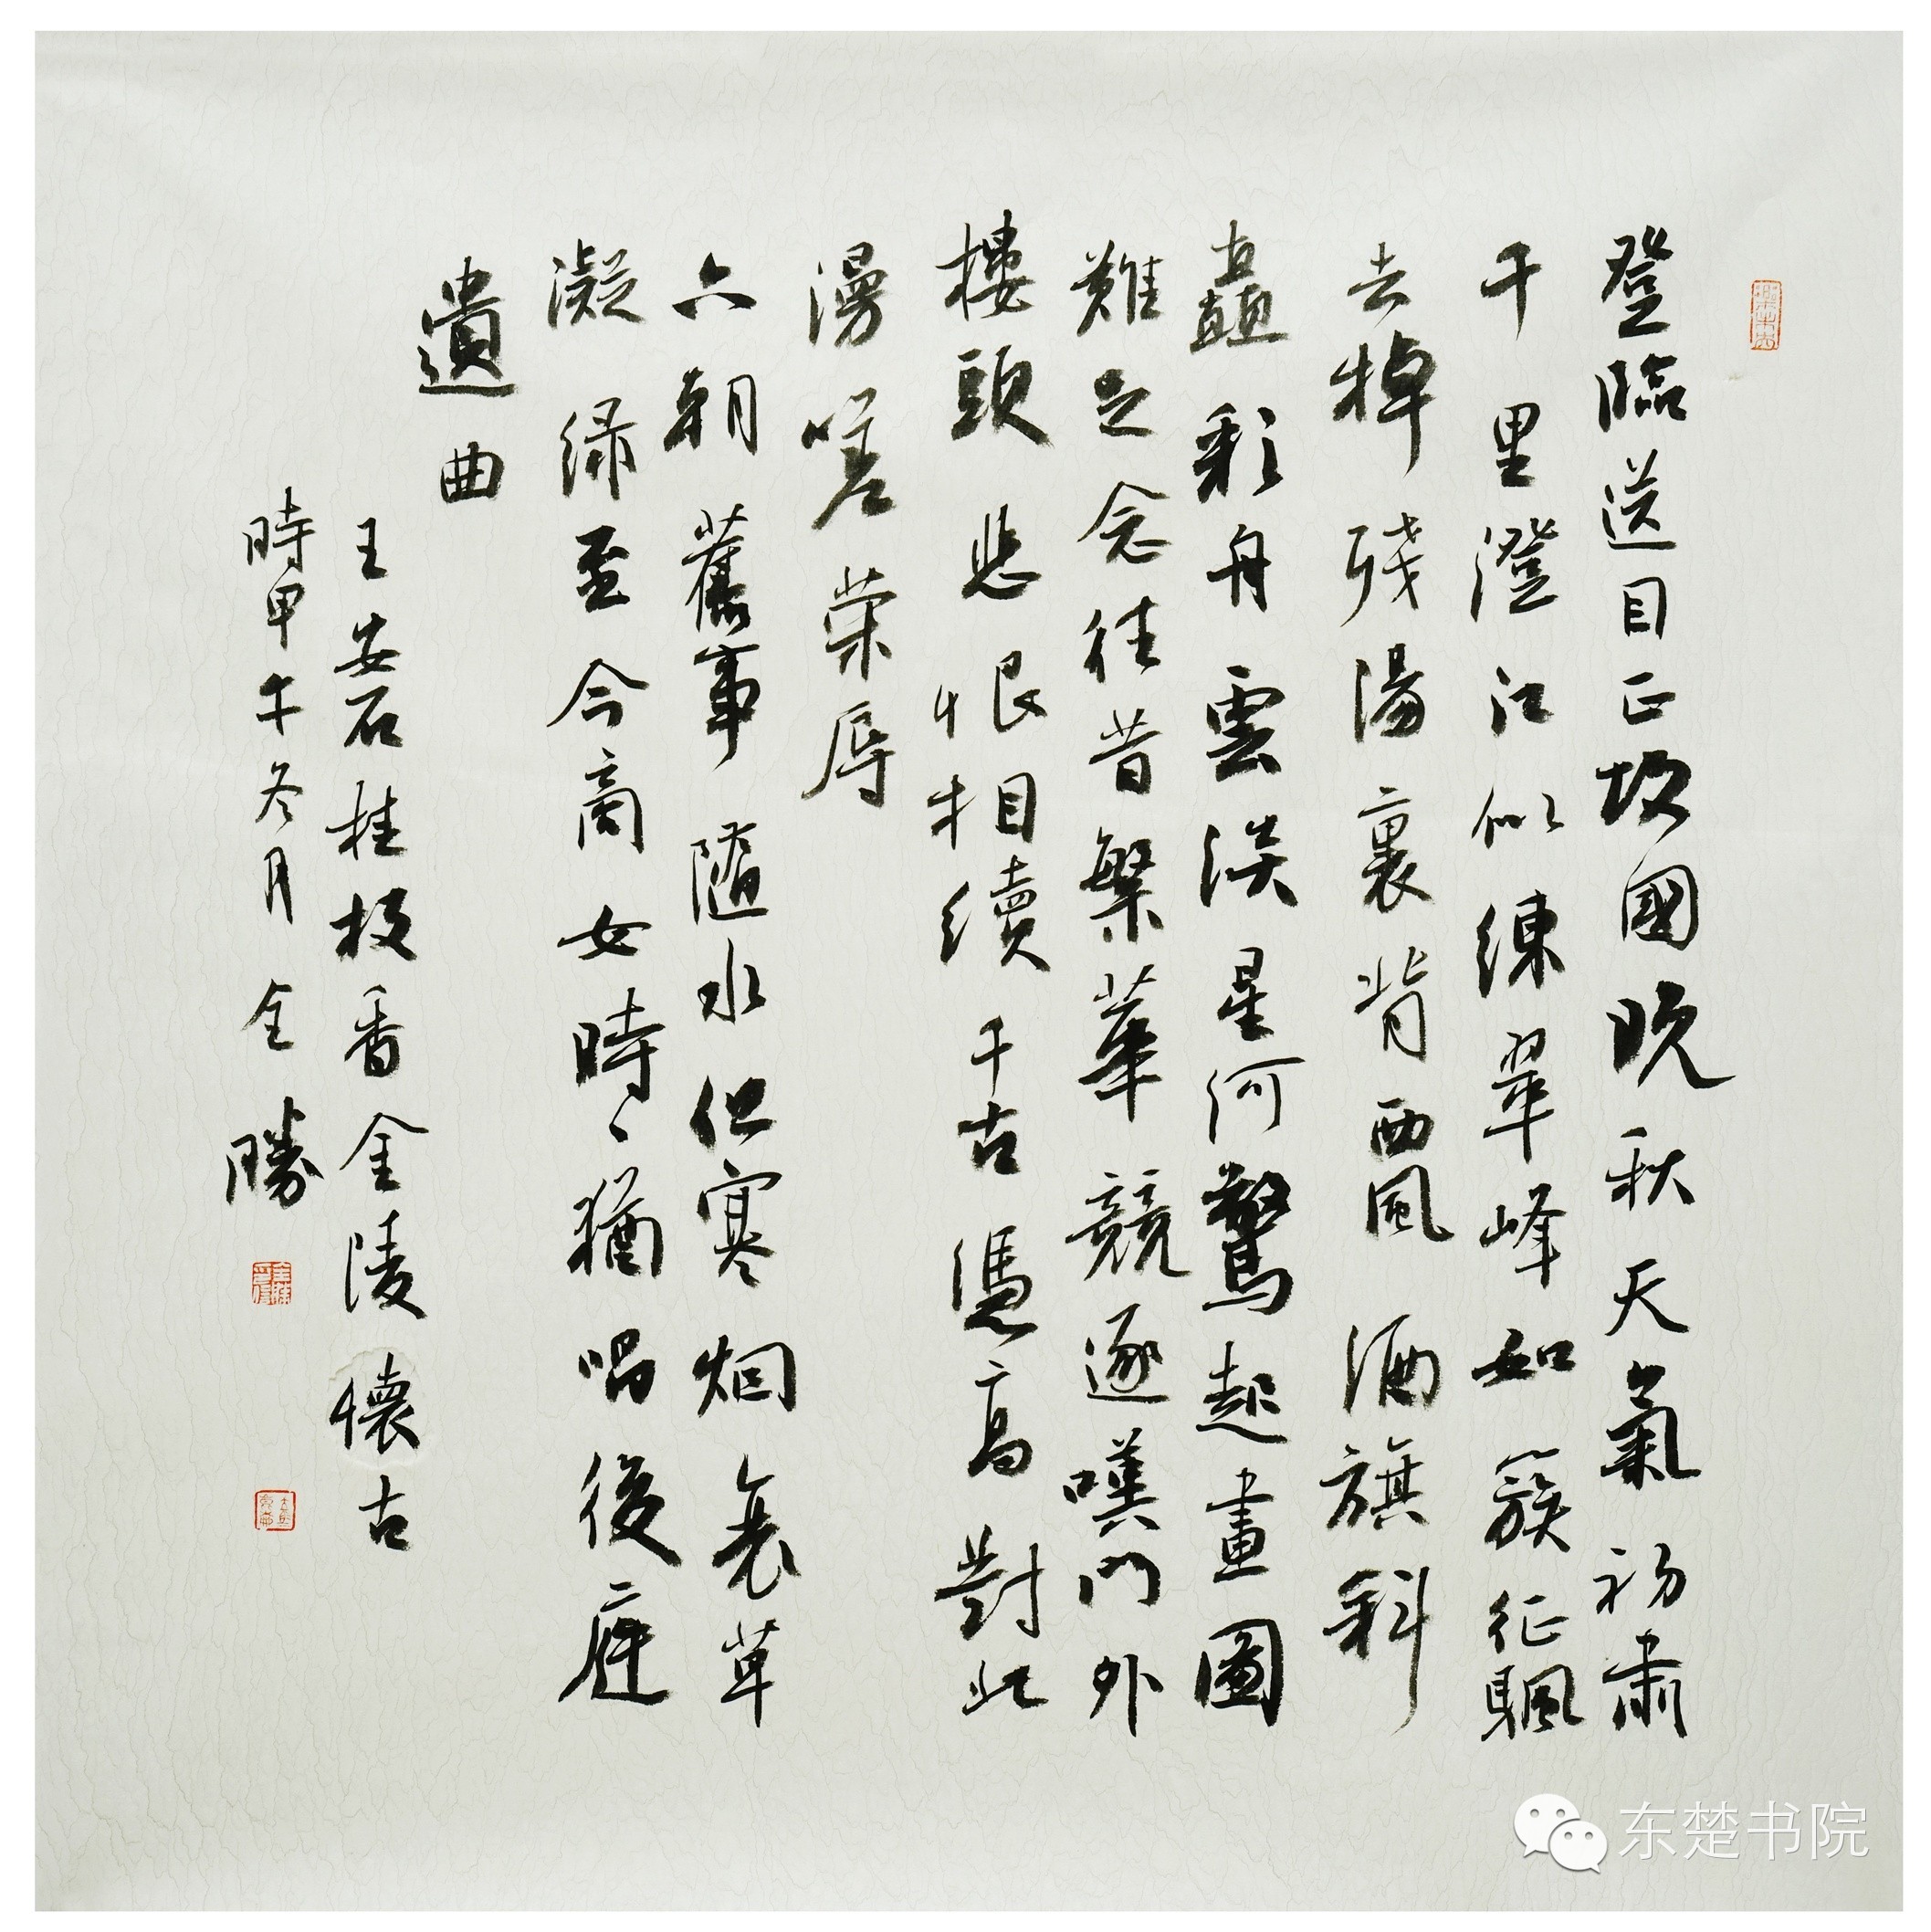 登臨送目正故國晚秋天氣初肅
千里澄江似練翠峰如簇征颿
去棹殘陽裏背西風酒旗斜
矗彩舟雲淡星河驚起畫圖
難足念往昔繁華競逐嘆門外
樓頭悲恨相續千古憑高對此
漫嗟榮辱
六朝舊事隨水但寒烟衰草
凝綠至今商女時々猶唱後庭
遺曲
王安石桂枝香金陵懷古
時甲午冬月全勝
东楚书院